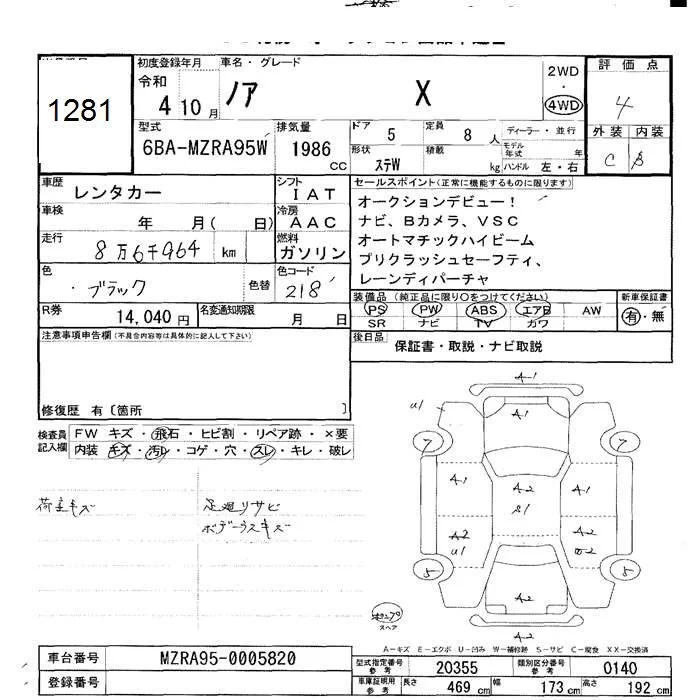 1281
初度登録年月
車名・グレード
令和
4 10月
ノア X
2WD
・
4WD
評価点
4
外装 内装
C B
型式
6BA-MZRA95W
排気量
1986
CC
ドア 5
定員 8人
ディーラー・並行
形状 ステW
積載 kg
モデル年式 年
ハンドル 左・右
車歴 レンタカー
シフト IAT
車検 年 月( 日)
冷房 AAC
走行 8万6千964 km
燃料 ガソリン
色 ブラック 色替
色コード 218
R券 14,040円
名変通知期限 月 日
セールスポイント(正常に機能するものに限ります)
オークションデビュー!
ナビ、Bカメラ、VSC
オートマチックハイビーム
プリクラッシュセーフティ、
レーンディパーチャ
装備品(純正品に限り○をつけてください)
新車保証書
PS PW ABS エアB AW
SR ナビ TV カワ
有・無
後日品 保証書・取説・ナビ取説
注意事項申告欄(不具合内容等は具体的に記入して下さい)
修復歴 有〔箇所 〕
検査員記入欄
FW キズ・飛石・ヒビ割・リペア跡・×要
内装 キズ・汚れ・コゲ・穴・スレ・キレ・破レ
足廻リサビ
A-1
U1
A-1
7 7
A-1 A-2 A-1
S1
A-2 A-2
U1
5 5
A-2
スペア
A-2
A-キズ E-エクボ U-凹み W-補修跡 S-サビ C-腐食 XX-交換済
車台番号 MZRA95-0005820
登録番号
型式指定番号 参考 20355
類別区分番号 参考 0140
車庫証明用 参考
長さ 469cm
幅 173cm
高さ 192cm